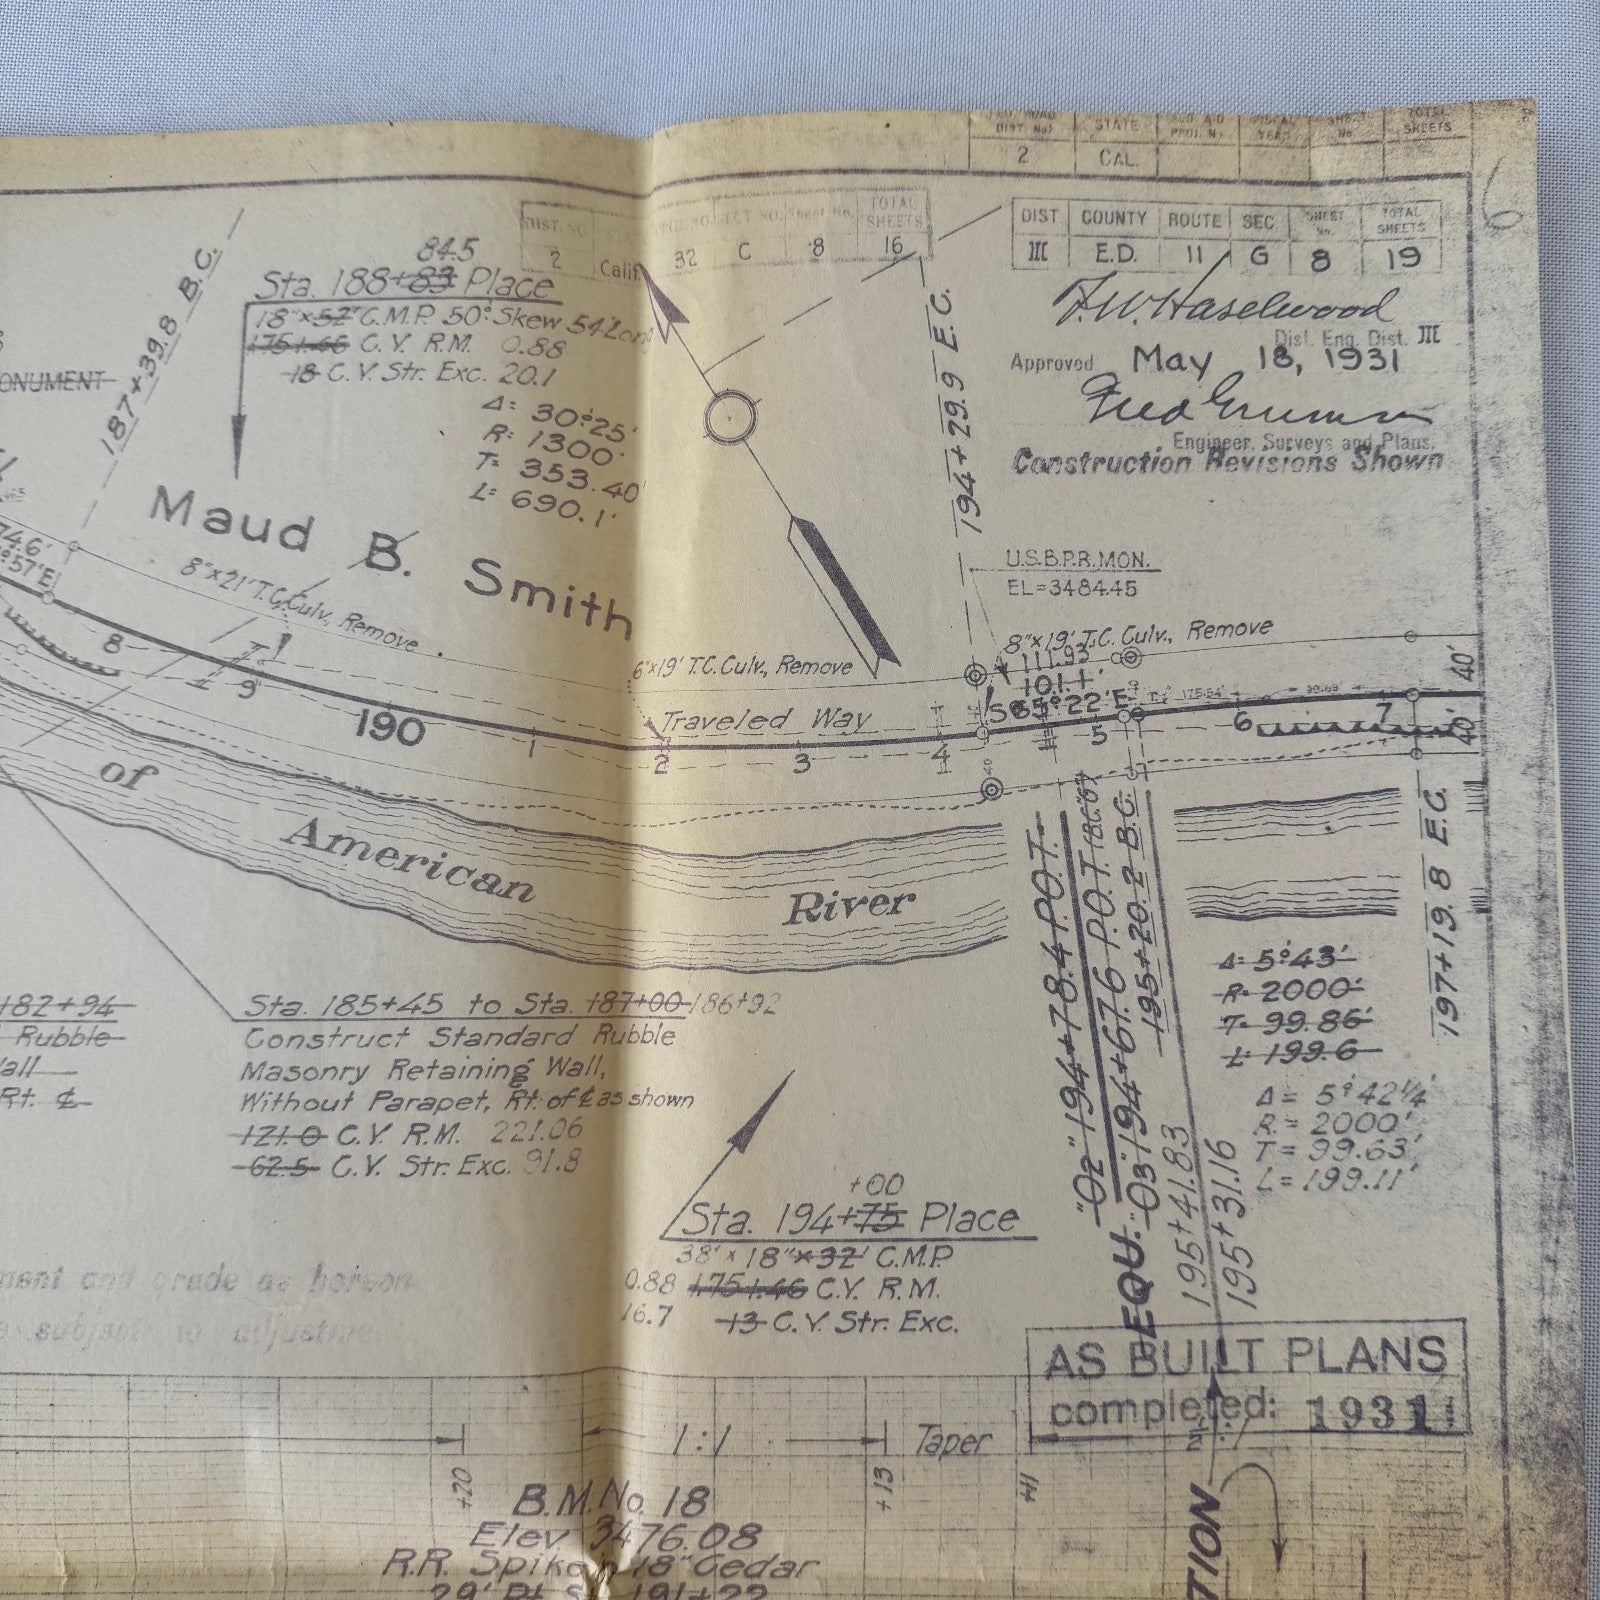 DIST. No. STATE PROJ. No. SHEET No. TOTAL SHEETS
2 CAL.
DIST. NO. SECT NO. Sheet No. TOTAL SHEETS
2 Calif. 32 C 8 16
DIST. COUNTY ROUTE SEC SHEET No. TOTAL SHEETS
III E.D. 11 G 8 19
F.W. Haselwood
Dist. Eng. Dist. III
Approved May 18, 1931
Engineer, Surveys and Plans.
Construction Revisions Shown
187+39.8 B.C.
84.5
Sta. 188+83 Place
18"x52' C.M.P. 50° Skew 54' Long
1.75 1.46 C.Y. R.M. 0.88
18 C.Y. Str. Exc. 20.1
Δ= 30°25'
R= 1300'
T= 353.40'
L= 690.1'
MONUMENT
194+29.9 E.C.
U.S.B.P.R. MON.
EL=3484.45
Maud B. Smith
74.6'
57'E
8"x21' T.C. Culv., Remove
6"x19' T.C. Culv., Remove
8"x19' T.C. Culv., Remove
111.93
101.1'
S65°22'E
175.54'
99.63'
40'
40'
Traveled Way
8 9 190 1 2 3 4 5 6 7
of American River
"O2" 194+78.4 P.O.T.
EQU. "O3" 194+67.6 P.O.T.
195+20.2 B.C.
195+41.83
195+31.16
197+19.8 E.C.
Δ= 5°43'
R= 2000'
T= 99.86'
L= 199.6
Δ= 5°42¼'
R= 2000'
T= 99.63'
L= 199.11'
182+94
Rubble
Rt. ℄
Sta. 185+45 to Sta. 187+00 186+92
Construct Standard Rubble
Masonry Retaining Wall,
Without Parapet, Rt. of ℄ as shown
121.0 C.Y. R.M. 221.06
62.5 C.Y. Str. Exc. 91.8
+00
Sta. 194+75 Place
38' x 18"x32' C.M.P.
0.88 1.75 1.46 C.Y. R.M.
16.7 13 C.Y. Str. Exc.
and grade as hereon
subject to adjustment
AS BUILT PLANS
completed: 1931
1:1 Taper
+20 +13 +41
B.M. No. 18
Elev 3476.08
R.R. Spike in 18" Cedar
29' Rt. St. 191+22
TION